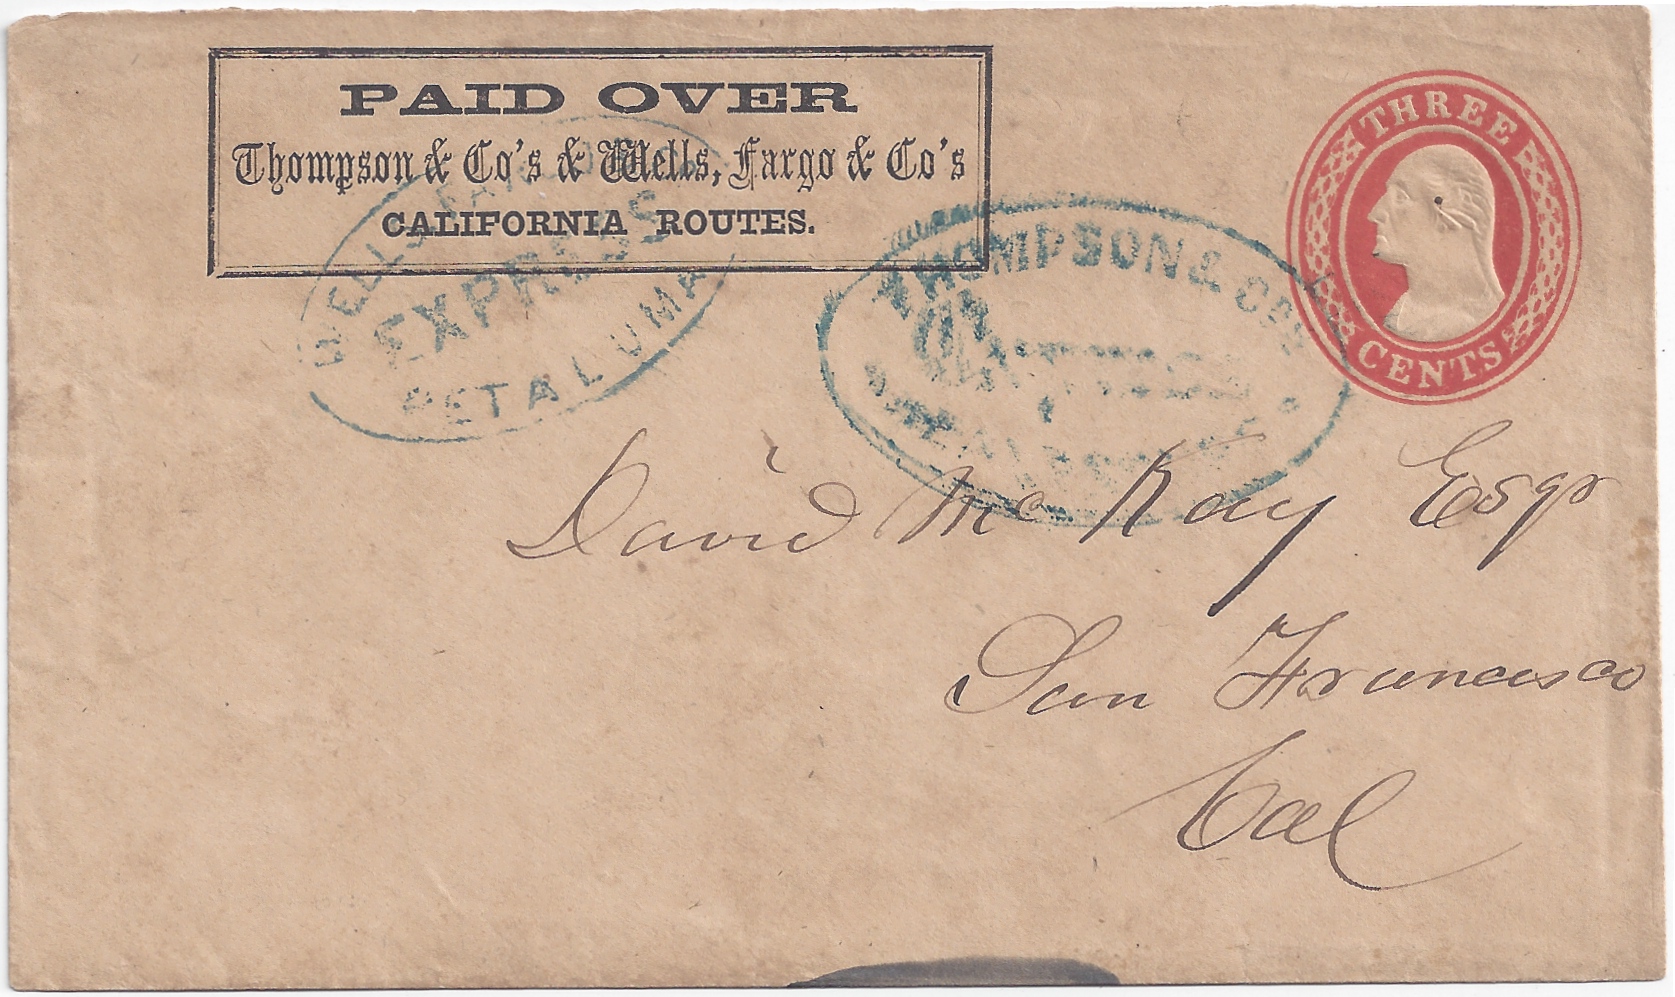 PAID OVER
Thompson & Co's & Wells, Fargo & Co's
CALIFORNIA ROUTES.
WELLS, FARGO & CO.
EXPRESS
PETALUMA
THOMPSON & CO'S
THREE
CENTS
David Mc Kay Esqr
San Francisco
Cal